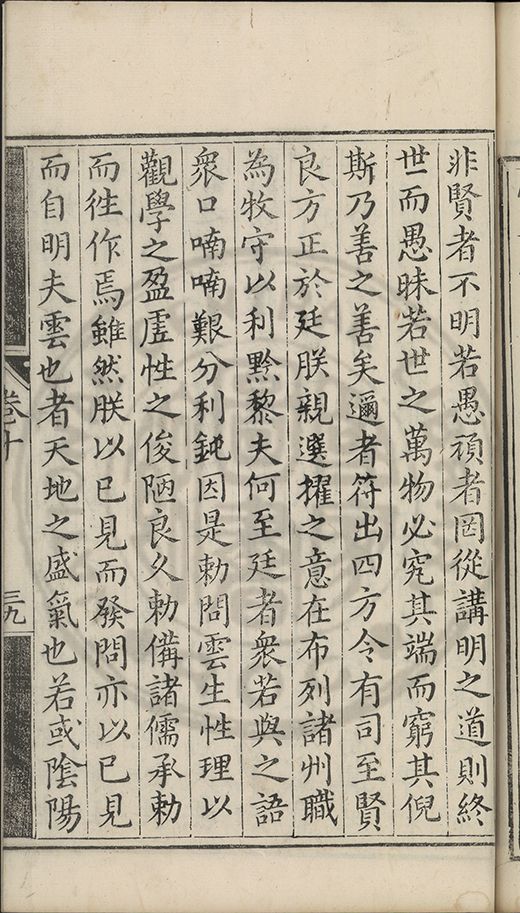 非賢者不明若愚頑者罔從講明之道則終
世而愚昧若世之萬物必究其端而窮其倪
斯乃善之善矣邇者符出四方令有司至賢
良方正於廷朕親選擢之意在布列諸州職
為牧守以利黔黎夫何至廷者衆若與之語
衆口喃喃艱分利鈍因是勅問雲生性理以
觀學之盈虛性之俊陋良久勅僃諸儒承勅
而徃作焉雖然朕以已見而發問亦以已見
而自明夫雲也者天地之盛氣也若或隂陽
卷十
三九